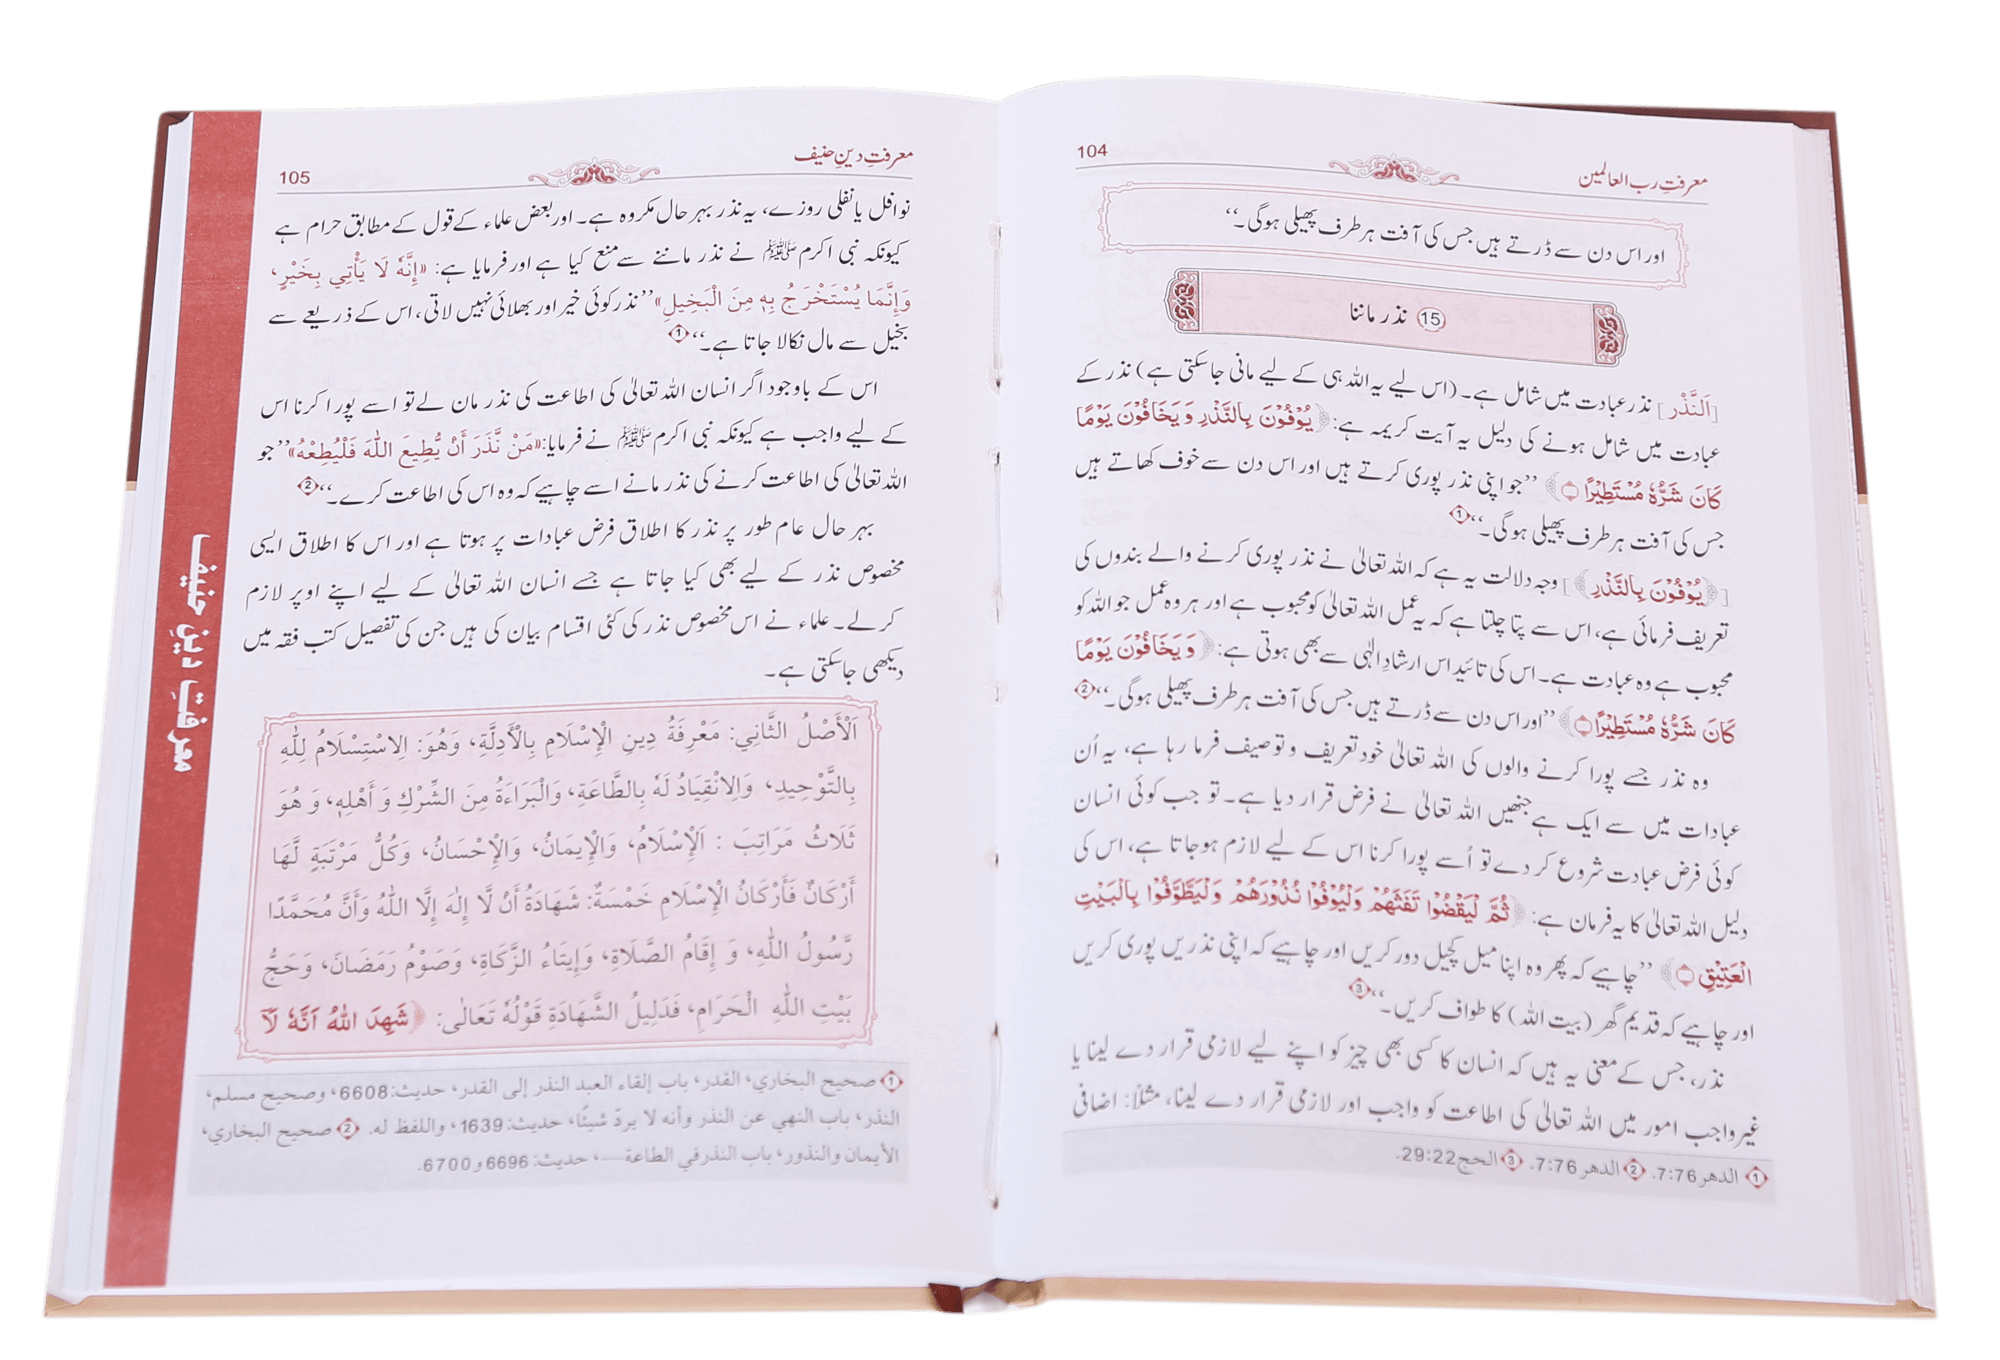 104
معرفتِ رب العالمین
اور اس دن سے ڈرتے ہیں جس کی آفت ہر طرف پھیلی ہوگی۔‘‘
15 نذر ماننا
[اَلنَّذْر] نذر عبادت میں شامل ہے۔ (اس لیے یہ اللہ ہی کے لیے مانی جاسکتی ہے) نذر کے
عبادت میں شامل ہونے کی دلیل یہ آیت کریمہ ہے: ﴿يُوْفُوْنَ بِالنَّذْرِ وَيَخَافُوْنَ يَوْمًا
كَانَ شَرُّهٗ مُسْتَطِيْرًا﴾ ’’جو اپنی نذر پوری کرتے ہیں اور اس دن سے خوف کھاتے ہیں
جس کی آفت ہر طرف پھیلی ہوگی۔‘‘ 1
[﴿يُوْفُوْنَ بِالنَّذْرِ﴾] وجہ دلالت یہ ہے کہ اللہ تعالیٰ نے نذر پوری کرنے والے بندوں کی
تعریف فرمائی ہے، اس سے پتا چلتا ہے کہ یہ عمل اللہ تعالیٰ کو محبوب ہے اور ہر وہ عمل جو اللہ کو
محبوب ہے وہ عبادت ہے۔ اس کی تائید اس ارشادِ الٰہی سے بھی ہوتی ہے: ﴿وَيَخَافُوْنَ يَوْمًا
كَانَ شَرُّهٗ مُسْتَطِيْرًا﴾ ’’اور اس دن سے ڈرتے ہیں جس کی آفت ہر طرف پھیلی ہوگی۔‘‘ 2
وہ نذر جسے پورا کرنے والوں کی اللہ تعالیٰ خود تعریف و توصیف فرما رہا ہے، یہ اُن
عبادات میں سے ایک ہے جنھیں اللہ تعالیٰ نے فرض قرار دیا ہے۔ تو جب کوئی انسان
کوئی فرض عبادت شروع کر دے تو اُسے پورا کرنا اس کے لیے لازم ہوجاتا ہے، اس کی
دلیل اللہ تعالیٰ کا یہ فرمان ہے: ﴿ثُمَّ لْيَقْضُوْا تَفَثَهُمْ وَلْيُوْفُوْا نُذُوْرَهُمْ وَلْيَطَّوَّفُوْا بِالْبَيْتِ
الْعَتِيْقِ﴾ ’’چاہیے کہ پھر وہ اپنا میل کچیل دور کریں اور چاہیے کہ اپنی نذریں پوری کریں
اور چاہیے کہ قدیم گھر (بیت اللہ) کا طواف کریں۔‘‘ 3
نذر، جس کے معنی یہ ہیں کہ انسان کا کسی بھی چیز کو اپنے لیے لازمی قرار دے لینا یا
غیر واجب امور میں اللہ تعالیٰ کی اطاعت کو واجب اور لازمی قرار دے لینا، مثلاً: اضافی
1 الدھر 7:76. 2 الدھر 7:76. 3 الحج 29:22.
معرفتِ دینِ حنیف
105
نوافل یا نفلی روزے، یہ نذر بہر حال مکروہ ہے۔ اور بعض علماء کے قول کے مطابق حرام ہے
کیونکہ نبی اکرم ﷺ نے نذر ماننے سے منع کیا ہے اور فرمایا ہے: «إِنَّهُ لَا يَأْتِي بِخَيْرٍ،
وَإِنَّمَا يُسْتَخْرَجُ بِهٖ مِنَ الْبَخِيلِ» ’’نذر کوئی خیر اور بھلائی نہیں لاتی، اس کے ذریعے سے
بخیل سے مال نکالا جاتا ہے۔‘‘ 1
اس کے باوجود اگر انسان اللہ تعالیٰ کی اطاعت کی نذر مان لے تو اسے پورا کرنا اس
کے لیے واجب ہے کیونکہ نبی اکرم ﷺ نے فرمایا: «مَنْ نَّذَرَ أَنْ يُّطِيعَ اللّٰهَ فَلْيُطِعْهُ» ’’جو
اللہ تعالیٰ کی اطاعت کرنے کی نذر مانے اسے چاہیے کہ وہ اس کی اطاعت کرے۔‘‘ 2
بہر حال عام طور پر نذر کا اطلاق فرض عبادات پر ہوتا ہے اور اس کا اطلاق ایسی
مخصوص نذر کے لیے بھی کیا جاتا ہے جسے انسان اللہ تعالیٰ کے لیے اپنے اوپر لازم
کرلے۔ علماء نے اس مخصوص نذر کی کئی اقسام بیان کی ہیں جن کی تفصیل کتب فقہ میں
دیکھی جاسکتی ہے۔
اَلْأَصْلُ الثَّانِي: مَعْرِفَةُ دِينِ الْإِسْلَامِ بِالْأَدِلَّةِ، وَهُوَ: الِاسْتِسْلَامُ لِلّٰهِ
بِالتَّوْحِيدِ، وَالِانْقِيَادُ لَهٗ بِالطَّاعَةِ، وَالْبَرَاءَةُ مِنَ الشِّرْكِ وَ أَهْلِهٖ، وَ هُوَ
ثَلَاثُ مَرَاتِبَ : اَلْإِسْلَامُ، وَالْإِيمَانُ، وَالْإِحْسَانُ، وَكُلُّ مَرْتَبَةٍ لَّهَا
أَرْكَانٌ فَأَرْكَانُ الْإِسْلَامِ خَمْسَةٌ: شَهَادَةُ أَنْ لَّا إِلٰهَ إِلَّا اللّٰهُ وَأَنَّ مُحَمَّدًا
رَّسُولُ اللّٰهِ، وَ إِقَامُ الصَّلَاةِ، وَإِيتَاءُ الزَّكَاةِ، وَصَوْمُ رَمَضَانَ، وَحَجُّ
بَيْتِ اللّٰهِ الْحَرَامِ، فَدَلِيلُ الشَّهَادَةِ قَوْلُهٗ تَعَالٰى: ﴿شَهِدَ اللّٰهُ اَنَّهٗ لَآ
1 صحيح البخاري، القدر، باب إلقاء العبد النذر إلى القدر، حديث: 6608، وصحيح مسلم،
النذر، باب النهي عن النذر وأنه لا يردّ شيئًا، حديث: 1639، واللفظ له. 2 صحيح البخاري،
الأيمان والنذور، باب النذر في الطاعة......، حديث: 6696 و 6700.
معرفتِ دینِ حنیف